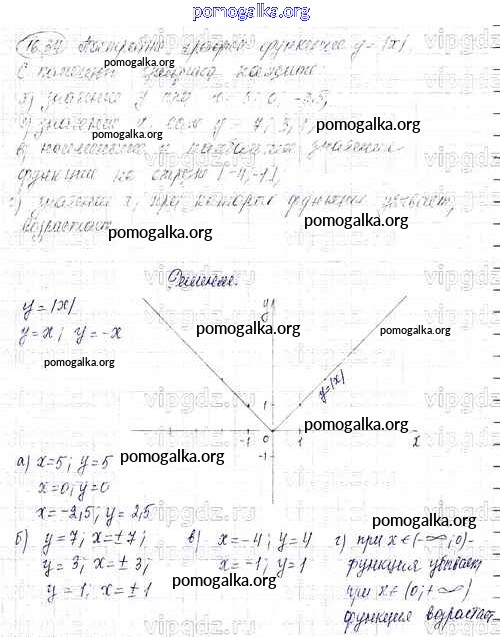 pomogalka.org
16.34 Построить график функции y = |x|.
С помощью графика найдите:
а) значение y при x = 5; 0; -2,5;
pomogalka.org
б) значения x, если y = 7; 3; 1;
pomogalka.org
в) наименьшее и наибольшее значения
функции на отрезке [-4; -1];
г) значения x, при которых функция убывает,
возрастает.
pomogalka.org
Решение.
y = |x|
y = x; y = -x
pomogalka.org
y
pomogalka.org
pomogalka.org
y=|x|
1
pomogalka.org
-1 0 1 x
-1
а) x=5; y=5
pomogalka.org
x=0; y=0
x=-2,5; y=2,5
б) y=7; x=±7;
y=3; x=±3;
y=1; x=±1
в) x=-4; y=4
x=-1; y=1
pomogalka.org
г) при x∈(-∞; 0)-
функция убывает
при x∈(0; +∞)
функция возрастает
pomogalka.org